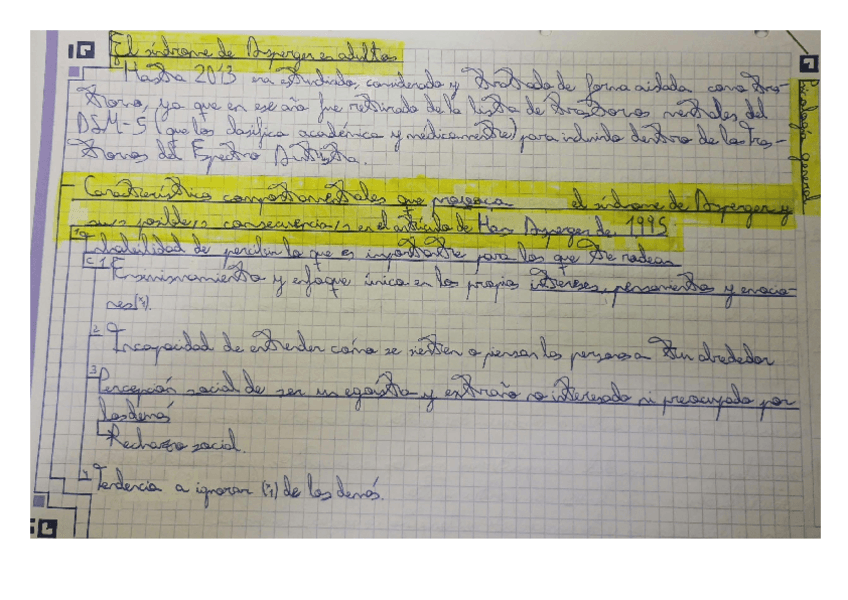 El síndrome de Asperger en adultos
Hasta 2013 era estudiado, considerado y tratado de forma aislada como tras-
torno, ya que en ese año fue retirado de la lista de trastornos mentales del
DSM-5 (que los clasifica académica y médicamente) para incluirlo dentro de los tras-
tornos del Espectro Autista.
Psicología general
Características comportamentales que provoca el síndrome de Asperger y
sus posible/s consecuencia/s en el artículo de Hans Asperger de 1995
1º Inhabilidad de percibir lo que es importante para los que te rodean
C.1 Ensimismamiento y enfoque único en los propios intereses, pensamientos y emocio-
nes
2 Incapacidad de entender cómo se sienten o piensan las personas a tu alrededor
3 Percepción social de ser un egoísta y extraño no interesado ni preocupado por
los demás
Rechazo social.
4 Tendencia a ignorar de los demás.